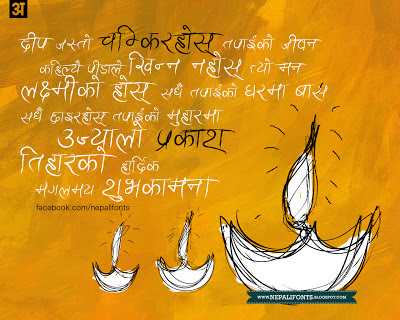 अ
दीप जस्तो चम्किरहोस् तपाईको जीवन
कहिल्यै पीडाले खिन्न नहोस् त्यो मन
लक्ष्मीको होस् सधैं तपाईको घरमा बास
सधैं छाइरहोस् तपाईको मुहारमा
उज्यालो प्रकाश
तिहारको हार्दिक
मंगलमय शुभकामना
facebook.com/nepalifonts
WWW.NEPALIFONTS.BLOGSPOT.COM